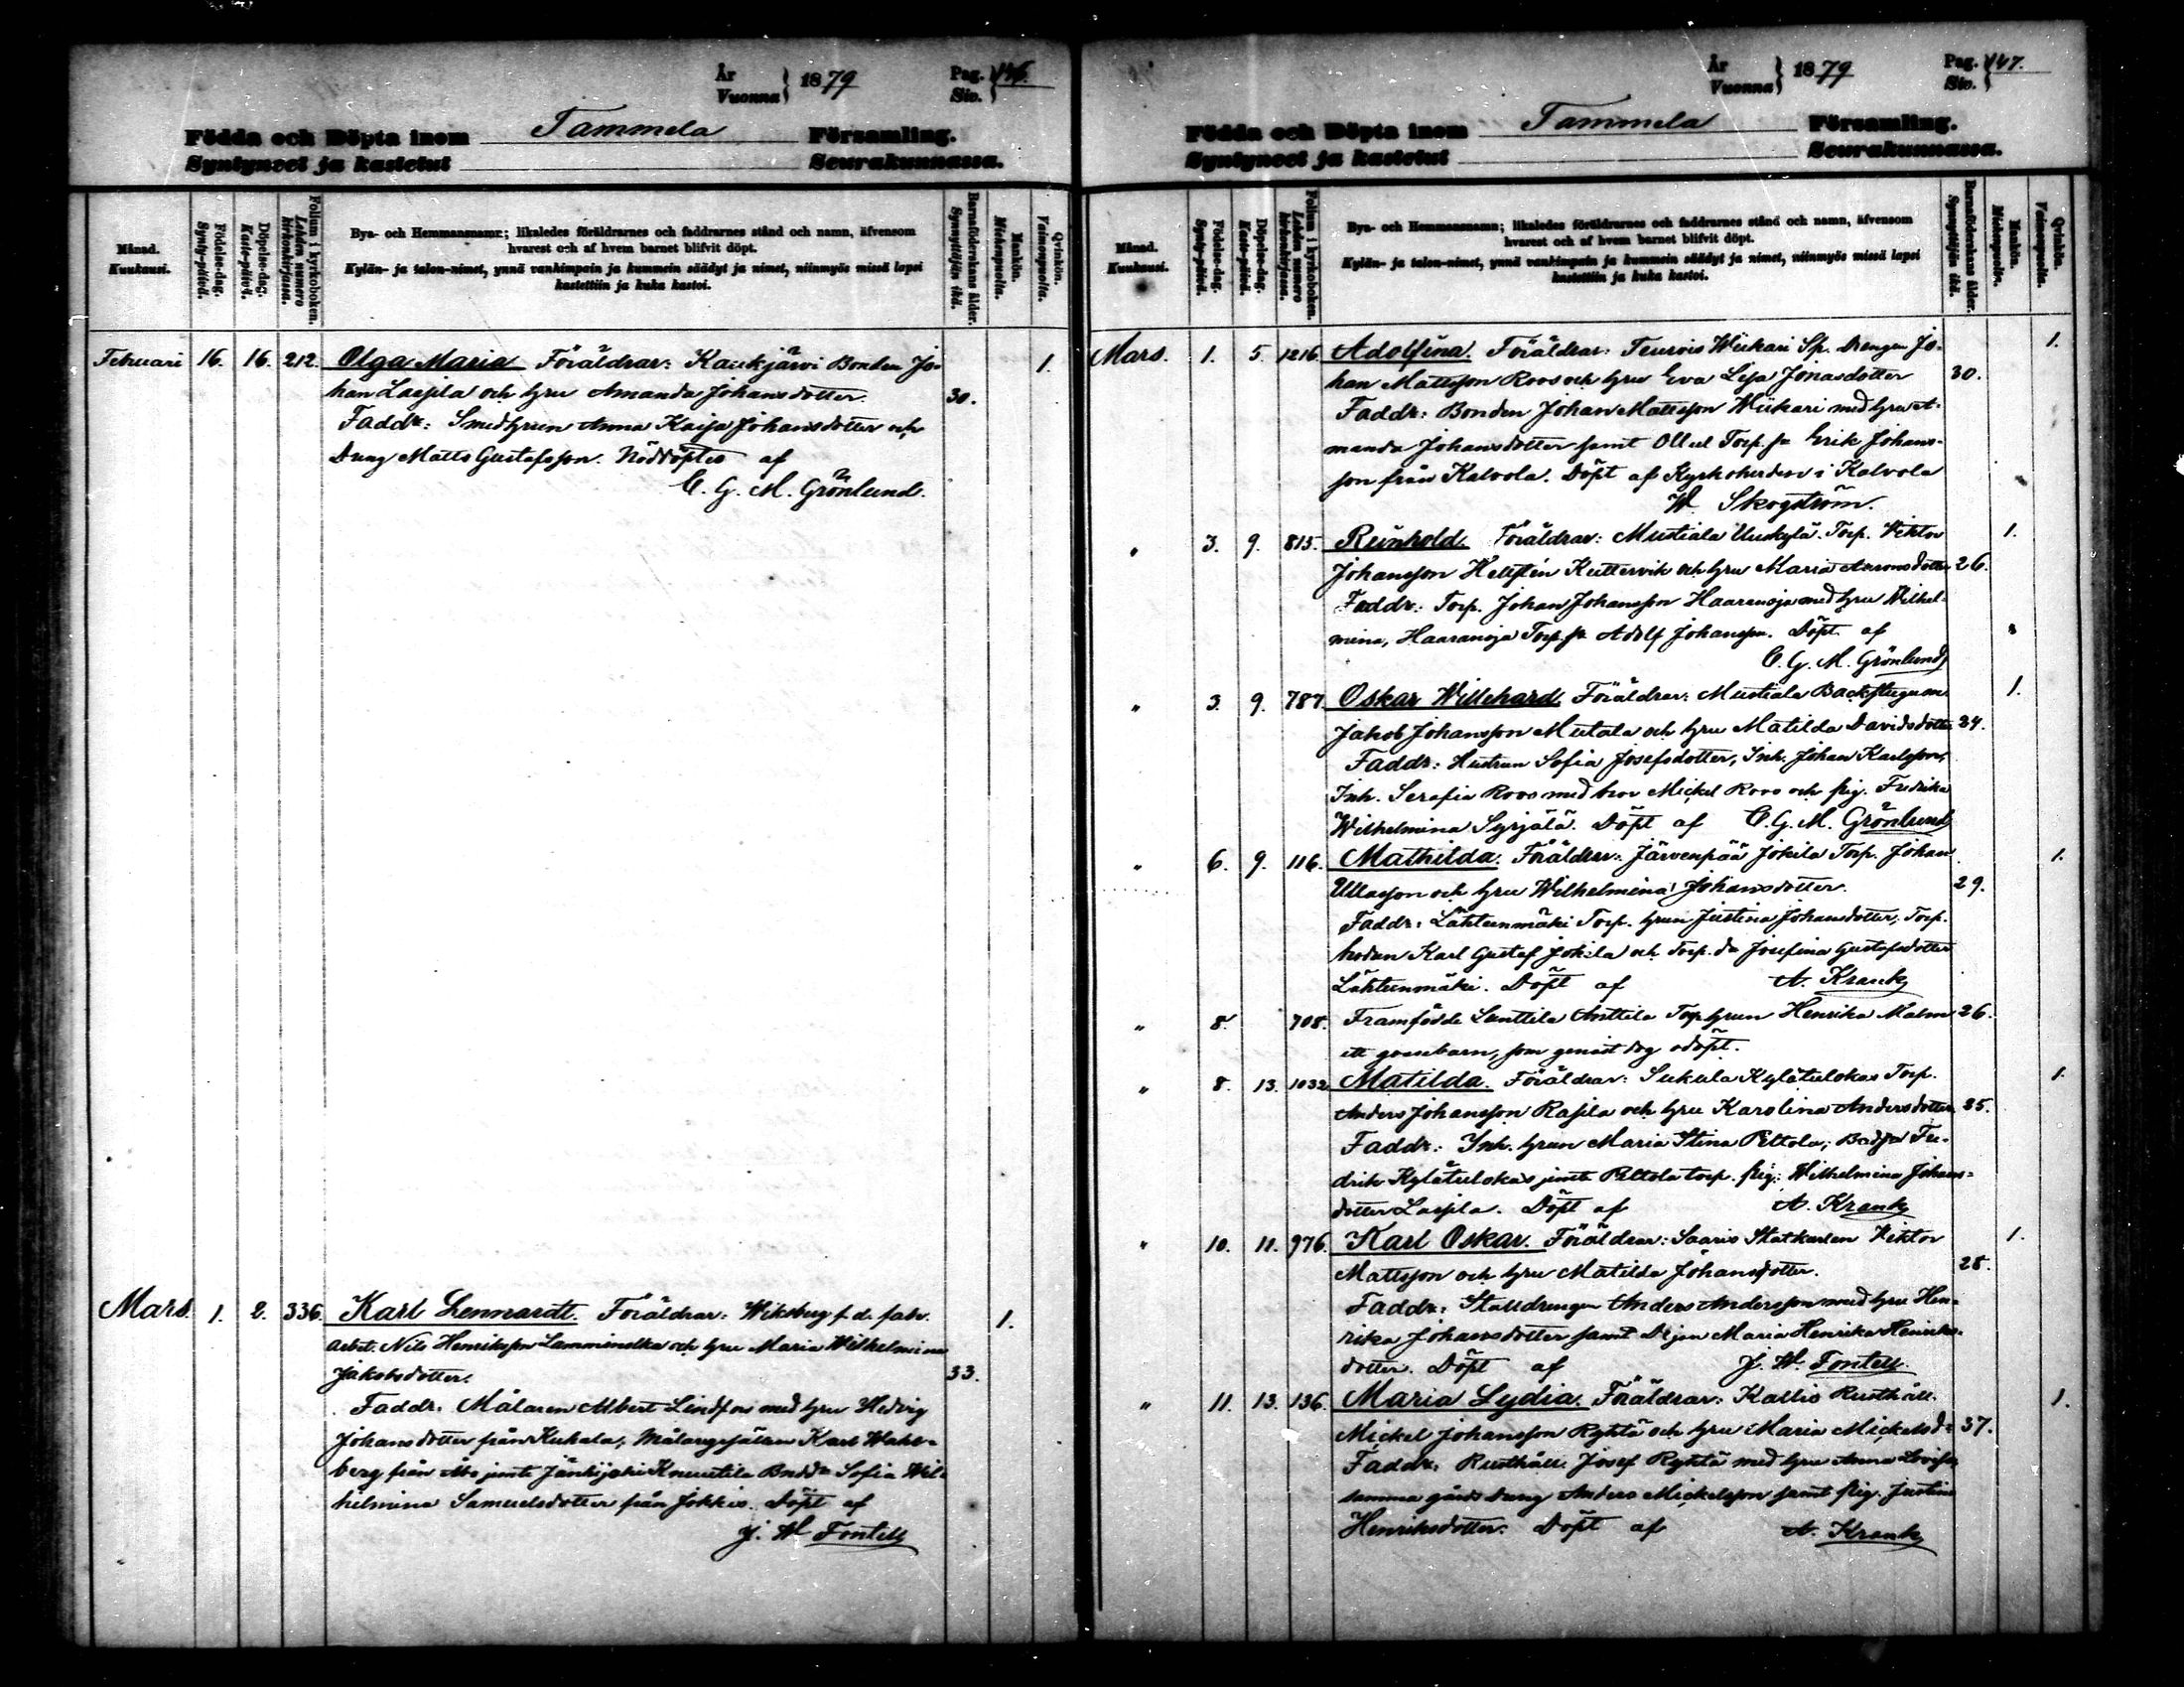 År
Vuonna } 1879
Pag.
Siv. } 146.
Födda och Döpta inom Tammela Församling.
Syntyneet ja kastetut Seurakunnassa.
Månad.
Kuukausi.
Födelse-dag.
Synty-päivä.
Döpelse-dag.
Kaste-päivä.
Folium i kyrkoboken.
Lehden numero kirkonkirjassa.
Bya- och Hemmansnamn; likaledes föräldrarnes och faddrarnes stånd och namn, äfvensom
hvarest och af hvem barnet blifvit döpt.
Kylän- ja talon-nimet, ynnä vanhimpain ja kummein säädyt ja nimet, niinmyös missä lapsi
kastettiin ja kuka kastoi.
Barnaföderskans ålder.
Synnyttäjän ikä.
Mankön.
Miehenpuolia.
Qvinkön.
Vaimonpuolia.
Februari 16. 16. 212. Olga Maria Föräldrar: Kaukjärvi Bonden Jo- 1.
han Laspila och hru Amanda Johansdotter. 30.
Faddr: Smedhrun Anna Kaisa Johansdotter och
Dräng Matts Gustafsson. Nöddöptes af
C. G. M. Grönlund.
Mars. 1. 2. 336. Karl Lennardt. Föräldrar: Wiksberg f. d. fabr. 1.
arbet. Nils Henriksson Lamminolka och hru Maria Wilhelmina
Jakobsdotter. 33.
Faddr. Målaren Albert Lindfors med hru Hedvig
Johansdotter från Kuhala, Målaregesällen Karl Wahl-
berg från Åbo jemte Jänhijoki Knuutila Bndr Sofia Wil-
helmina Samuelsdotter från Jokkis. Döpt af
J. W. Fontell
År
Vuonna } 1879
Pag.
Siv. } 147.
Födda och Döpta inom Tammela Församling.
Syntyneet ja kastetut Seurakunnassa.
Månad.
Kuukausi.
Födelse-dag.
Synty-päivä.
Döpelse-dag.
Kaste-päivä.
Folium i kyrkoboken.
Lehden numero kirkonkirjassa.
Bya- och Hemmansnamn; likaledes föräldrarnes och faddrarnes stånd och namn, äfvensom
hvarest och af hvem barnet blifvit döpt.
Kylän- ja talon-nimet, ynnä vanhimpain ja kummein säädyt ja nimet, niinmyös missä lapsi
kastettiin ja kuka kastoi.
Barnaföderskans ålder.
Synnyttäjän ikä.
Mankön.
Miehenpuolia.
Qvinkön.
Vaimonpuolia.
Mars. 1. 5. 1216. Adolfina. Föräldrar: Teurois Wiikari Sp. Drengen Jo- 1.
han Mattsson Roos och hru Eva Lisa Jonasdotter 30.
Faddr: Bonden Johan Mattsson Wiikari med hru A-
manda Johansdotter samt Ollul Torp. ss Erik Johans-
son från Kalvola. Döpt af Kyrkoherden i Kalvola
W Skogström.
" 3. 9. 815. Reinhold. Föräldrar: Mustiala Uusikylä. Torp. Viktor 1.
Johansson Hellstén Kuttervik och hru Maria Aaronsdotter 26.
Faddr: Torp. Johan Johansson Haaranoja med hru Wilhel-
mina, Haaranoja Torp. ss Adolf Johansson. Döpt af
C. G. M. Grönlund
" 3. 9. 787. Oskar Willehard. Föräldrar: Mustiala Backstugum. 1.
Jakob Johansson Mutala och hru Matilda Davidsdotter 34.
Faddr: Hustrun Sofia Josefsdotter, Inh. Johan Karlsson,
Inh. Serafia Roos med bror Mickel Roos och pig. Fredrika
Wilhelmina Syrjälä. Döpt af C. G. M. Grönlund
" 6. 9. 116. Mathilda. Föräldrar: Järvenpää Jokila Torp. Johan 1.
Ullasson och hru Wilhelmina Johansdotter. 29.
Faddr: Lähteenmäki Torp. hrun Justina Johansdotter, Torp.
Karl Gustaf Jokila och Torp. dr Josefina Gustafsdotter
Lähteenmäki. Döpt af A. Krank
" 8. 708. Framfödde Lunttila Anttila Torp hrun Henrika Malm 26.
ett gossebarn, som genast dog odöpt.
" 8. 13. 1032. Matilda. Föräldrar: Sukula Kylätulokas Torp. 1.
Anders Johansson Rasila och hru Karolina Andersdotter 35.
Faddr: Inh. hrun Maria Stina Peltola, Fre-
drik Kylätulokas jemte Peltola torp. pig. Wilhelmina Johans-
dotter Laspila. Döpt af A. Krank
" 10. 11. 976. Karl Oskar. Föräldrar: Saaris Statkarlen Viktor 1.
Mattsson och hru Matilda Johansdotter. 28.
Faddr: Stalldrengen Anders Andersson med hru Hen-
rika Johansdotter samt Dejan Maria Henrika Henriks-
dotter. Döpt af J. W. Fontell.
" 11. 13. 136. Maria Lydia. Föräldrar: Kallio Rusthåll. 1.
Mickel Johansson Ryhtä och hru Maria Mickelsdr 37.
Faddr: Rusthåll. Josef Ryhtä med hru Anna Lovisa,
samma gårds dräng Anders Mickelsson samt pig. Justina
Henriksdotter. Döpt af A. Krank